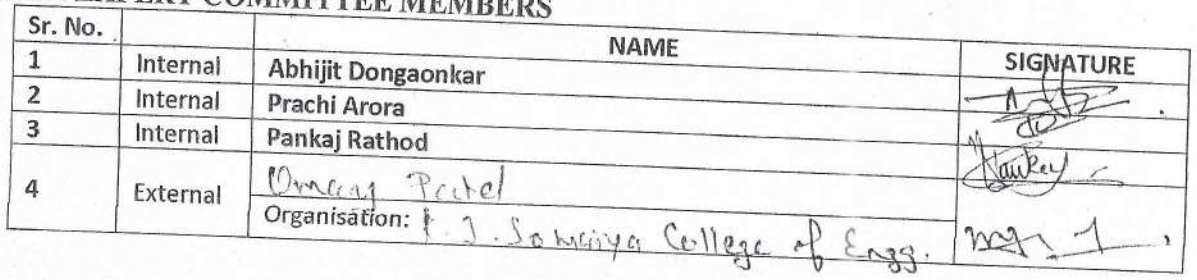 EXPERT COMMITTEE MEMBERS
Sr. No. NAME SIGNATURE
1 Internal Abhijit Dongaonkar
2 Internal Prachi Arora
3 Internal Pankaj Rathod
4 External Patel
Organisation: K. J. Somaiya College of Engg.